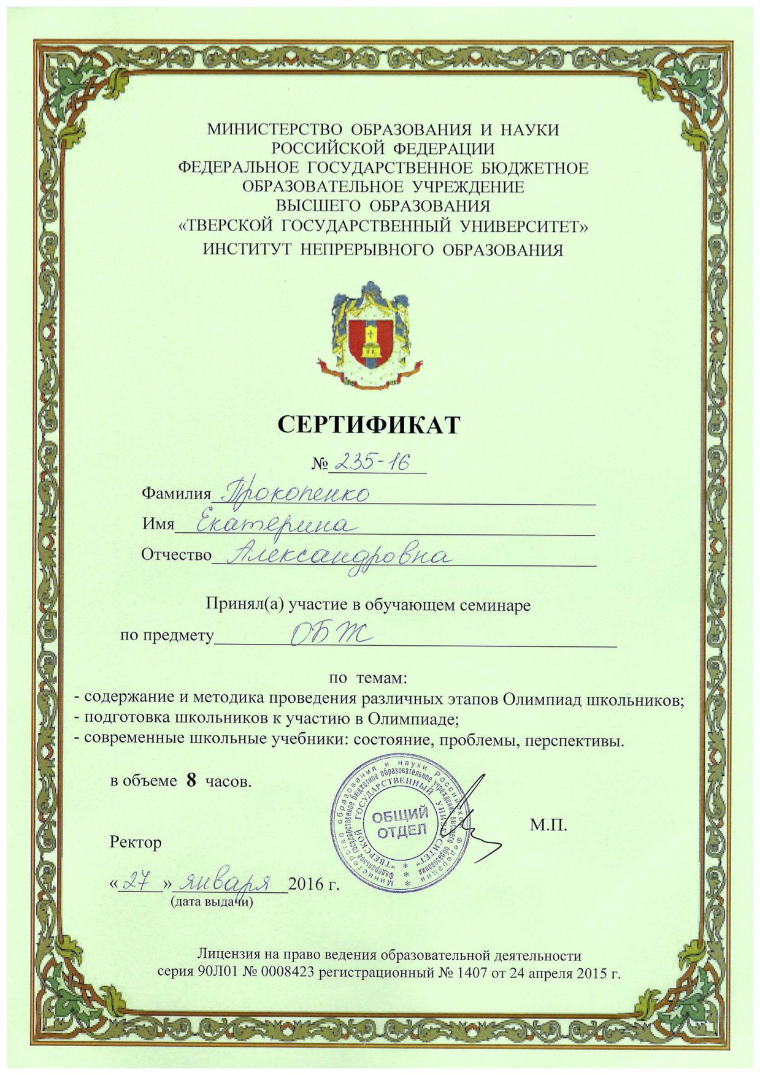 МИНИСТЕРСТВО ОБРАЗОВАНИЯ И НАУКИ
РОССИЙСКОЙ ФЕДЕРАЦИИ
ФЕДЕРАЛЬНОЕ ГОСУДАРСТВЕННОЕ БЮДЖЕТНОЕ
ОБРАЗОВАТЕЛЬНОЕ УЧРЕЖДЕНИЕ
ВЫСШЕГО ОБРАЗОВАНИЯ
«ТВЕРСКОЙ ГОСУДАРСТВЕННЫЙ УНИВЕРСИТЕТ»
ИНСТИТУТ НЕПРЕРЫВНОГО ОБРАЗОВАНИЯ
СЕРТИФИКАТ
№ 235-16
Фамилия Прокопенко
Имя Екатерина
Отчество Александровна
Принял(а) участие в обучающем семинаре
по предмету ОБЖ
по темам:
- содержание и методика проведения различных этапов Олимпиад школьников;
- подготовка школьников к участию в Олимпиаде;
- современные школьные учебники: состояние, проблемы, перспективы.
в объеме 8 часов.
Министерство образования и науки Российской Федерации
Федеральное государственное бюджетное образовательное учреждение высшего образования
"ТВЕРСКОЙ ГОСУДАРСТВЕННЫЙ УНИВЕРСИТЕТ"
ОБЩИЙ
ОТДЕЛ
М.П.
Ректор
«27» января 2016 г.
(дата выдачи)
Лицензия на право ведения образовательной деятельности
серия 90Л01 № 0008423 регистрационный № 1407 от 24 апреля 2015 г.